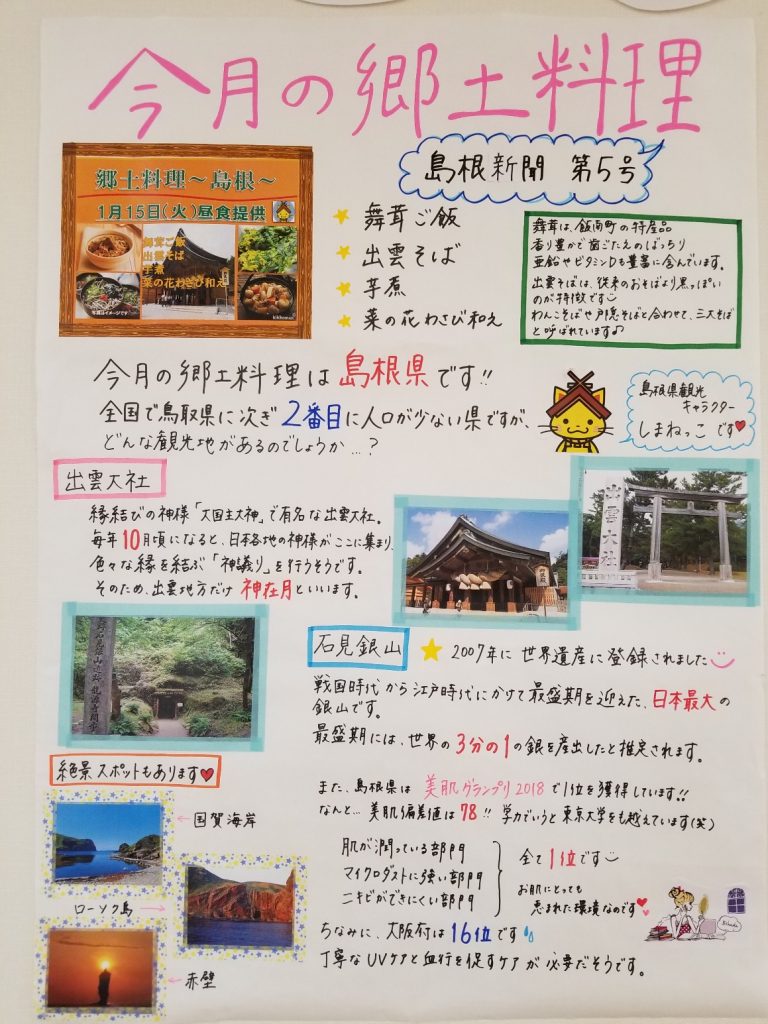 今月の郷土料理
島根新聞 第5号
郷土料理～島根～
1月15日(火)昼食提供
舞茸ご飯
出雲そば
芋煮
菜の花わさび和え
★ 舞茸ご飯
★ 出雲そば
★ 芋煮
★ 菜の花わさび和え
舞茸は、飯南町の特産品
香り豊かで歯ごたえのばっちり
亜鉛やビタミンDも豊富に含んでいます。
出雲そばは、従来のおそばより黒っぽい
のが特徴です
わんこそばや戸隠そばと合わせて、三大そば
と呼ばれています♪
今月の郷土料理は島根県です!!
全国で鳥取県に次ぎ2番目に人口が少ない県ですが、
どんな観光地があるのでしょうか…?
島根県観光
キャラクター
しまねっこです♥
出雲大社
縁結びの神様「大国主大神」で有名な出雲大社。
毎年10月頃になると、日本各地の神様がここに集まり、
色々な縁を結ぶ「神議り」を行うそうです。
そのため、出雲地方だけ神在月といいます。
出雲大社
石見銀山 ★ 2007年に世界遺産に登録されました
戦国時代から江戸時代にかけて最盛期を迎えた、日本最大の
銀山です。
最盛期には、世界の3分の1の銀を産出したと推定されます。
龍源寺間歩
絶景スポットもあります♥
←国賀海岸
ローソク島→
←赤壁
また、島根県は美肌グランプリ2018で1位を獲得しています!!
なんと…美肌偏差値は78!! 学力でいうと東京大学をも越えています(笑)
肌が潤っている部門
マイクロダストに強い部門
ニキビができにくい部門
全て1位です
お肌にとっても
恵まれた環境なのです
ちなみに、大阪府は16位です
丁寧なUVケアと血行を促すケアが必要だそうです。